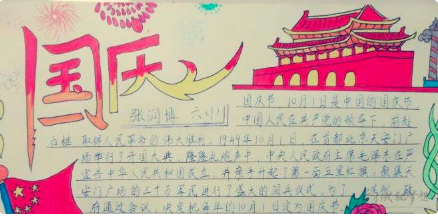 国庆
张润博 六小川
国庆节 10月1日是中国的国庆节
中国人民在共产党的领导下 前赴
后继 取得人民革命的伟大胜利，1949年10月1日，在首都北京天安门
广场举行了开国大典 隆隆礼炮声中，中央人民政府主席毛泽东庄
宣告中华人民共和国成立，并亲手升起了第一面五星红旗，聚集天
安门广场的三十万军民进行了盛大的阅兵仪式
府通过会议，决定把每年的10月1日定为国庆节